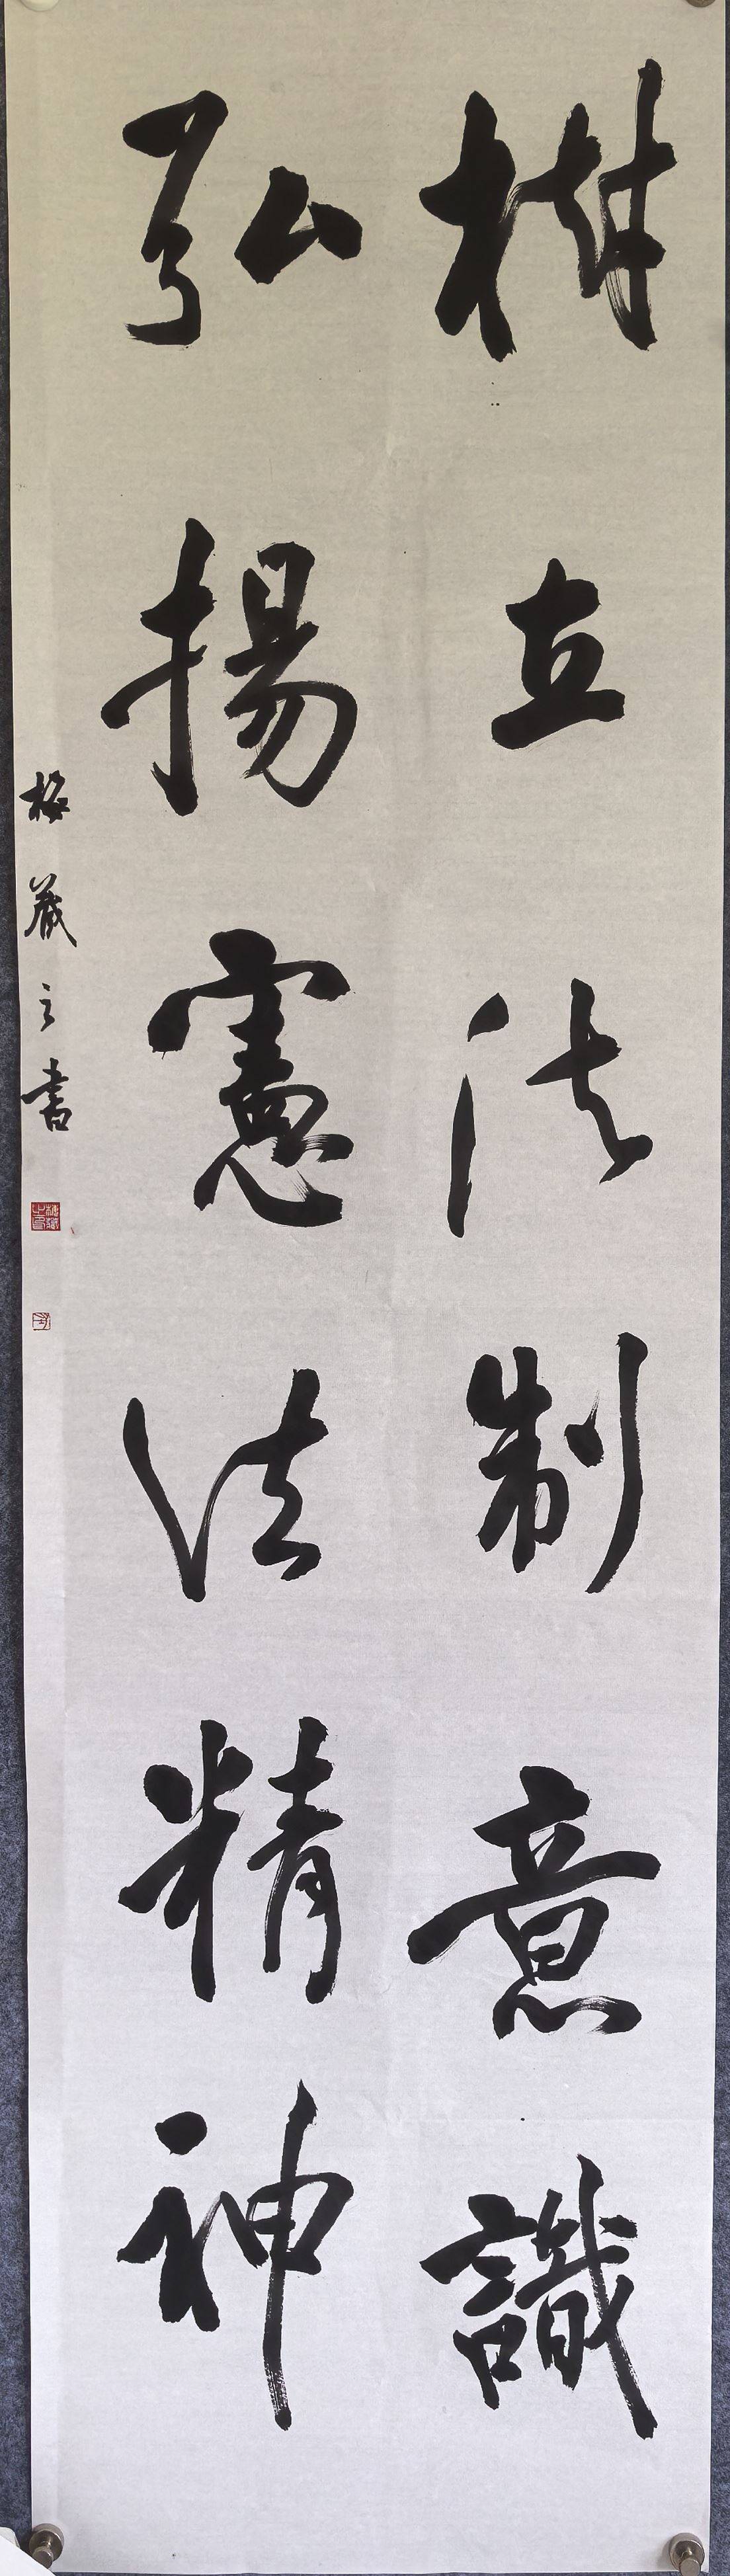 树立法制意識
弘揚憲法精神
之書